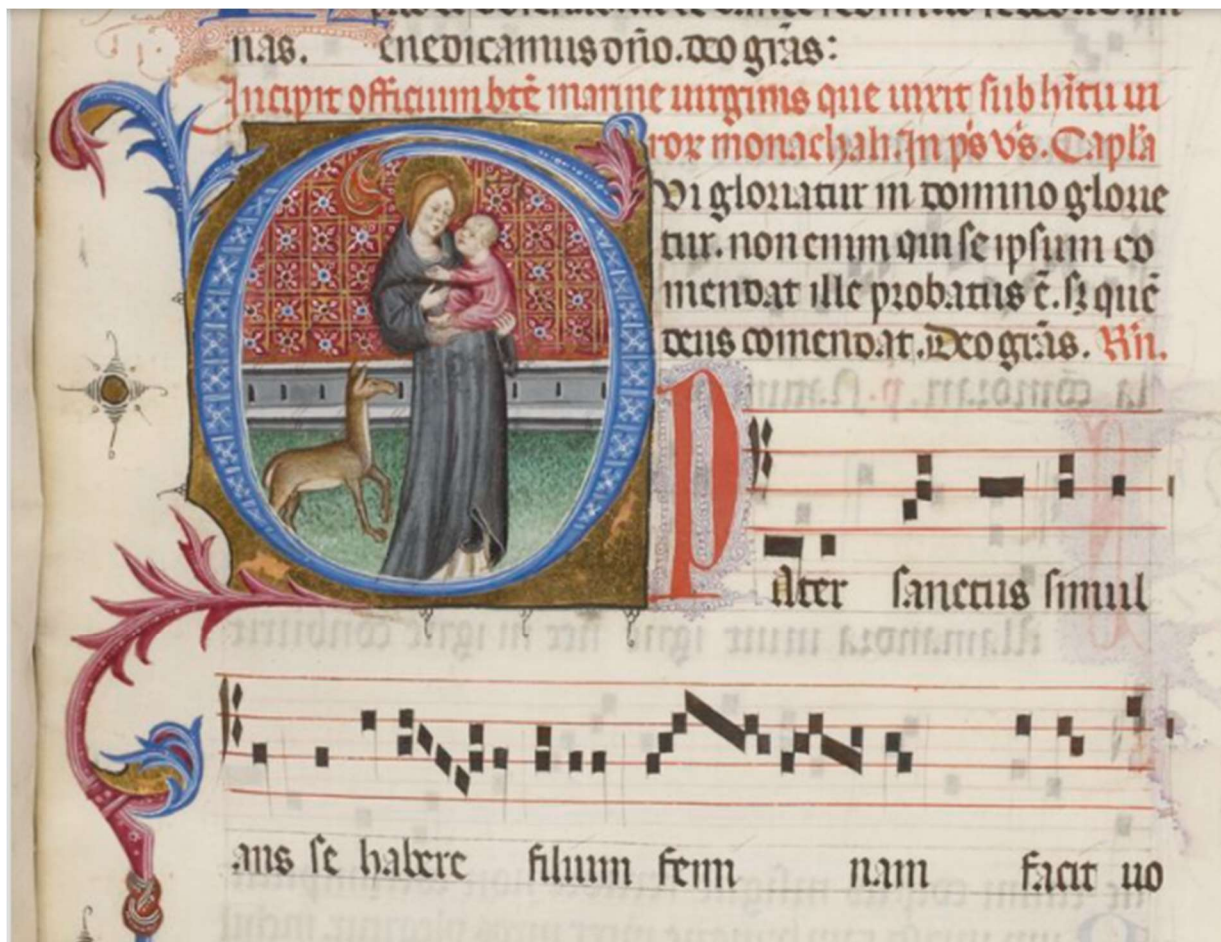 nas. enedicamus dño. deo grãs:
Incipit officium btẽ marine uirginis que uixit sub hitu ui
ror monachali. In ps vs. Capla
Vi gloriatur in domino glorie
tur. non enim qui se ipsum co
mendat ille probatus ẽ. sꝫ quẽ
deus comendat. Deo grãs. Rñ.
Pater sanctus simul
ans se habere filium femi nam facit uo